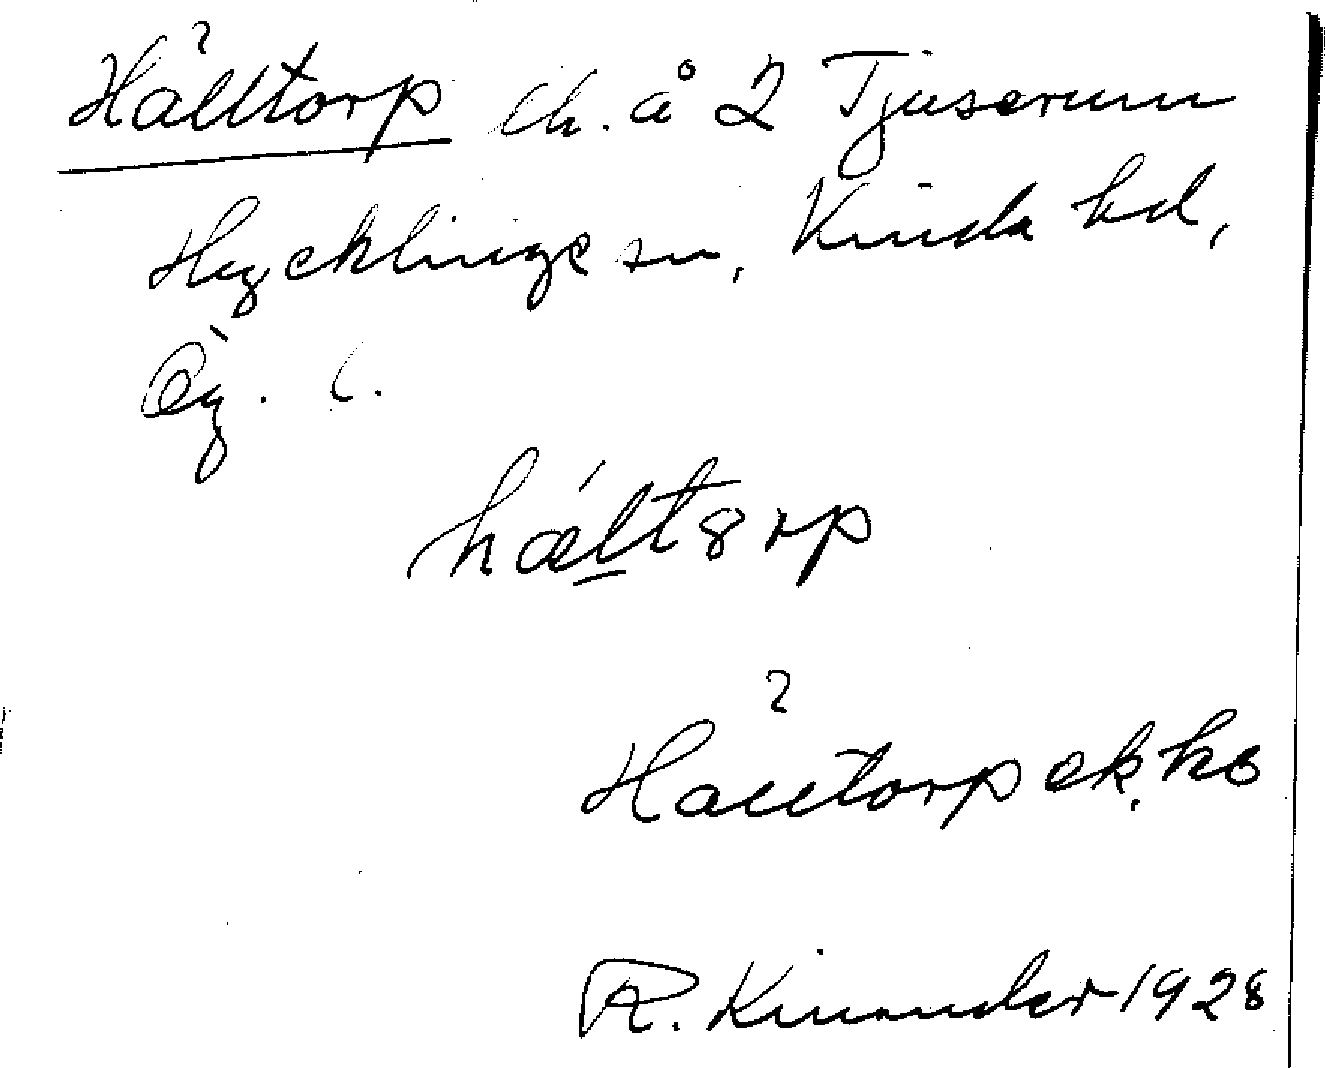 ?
Hälltorp lh. å 2 Tjuserum
Hycklinge sn, Kinda hd,
Ög. l.
hæ´ltȣrp
?
Hälltorp ek. ka
R. Kinander 1928